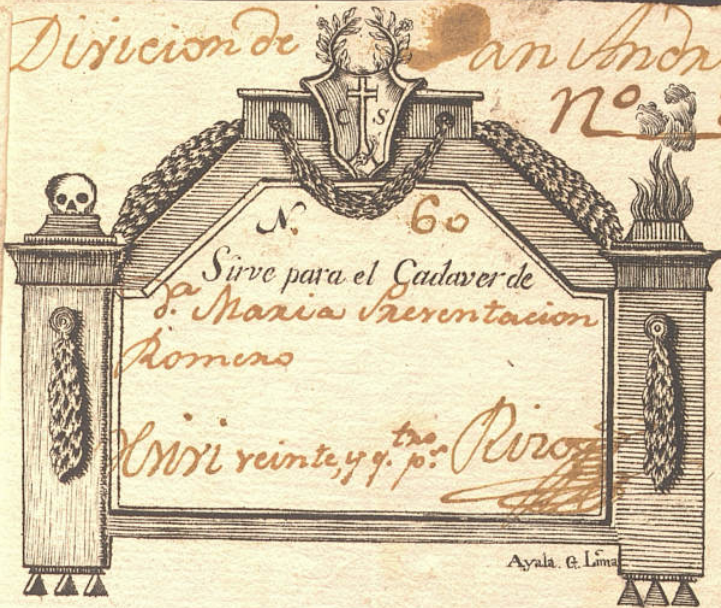 Divicion de San Andr
No.
C S
N. 60
Sirve para el Cadaver de
d.a Maria Presentacion
Romero
veinte, y q.tro p.s
Ayala. G. Lima